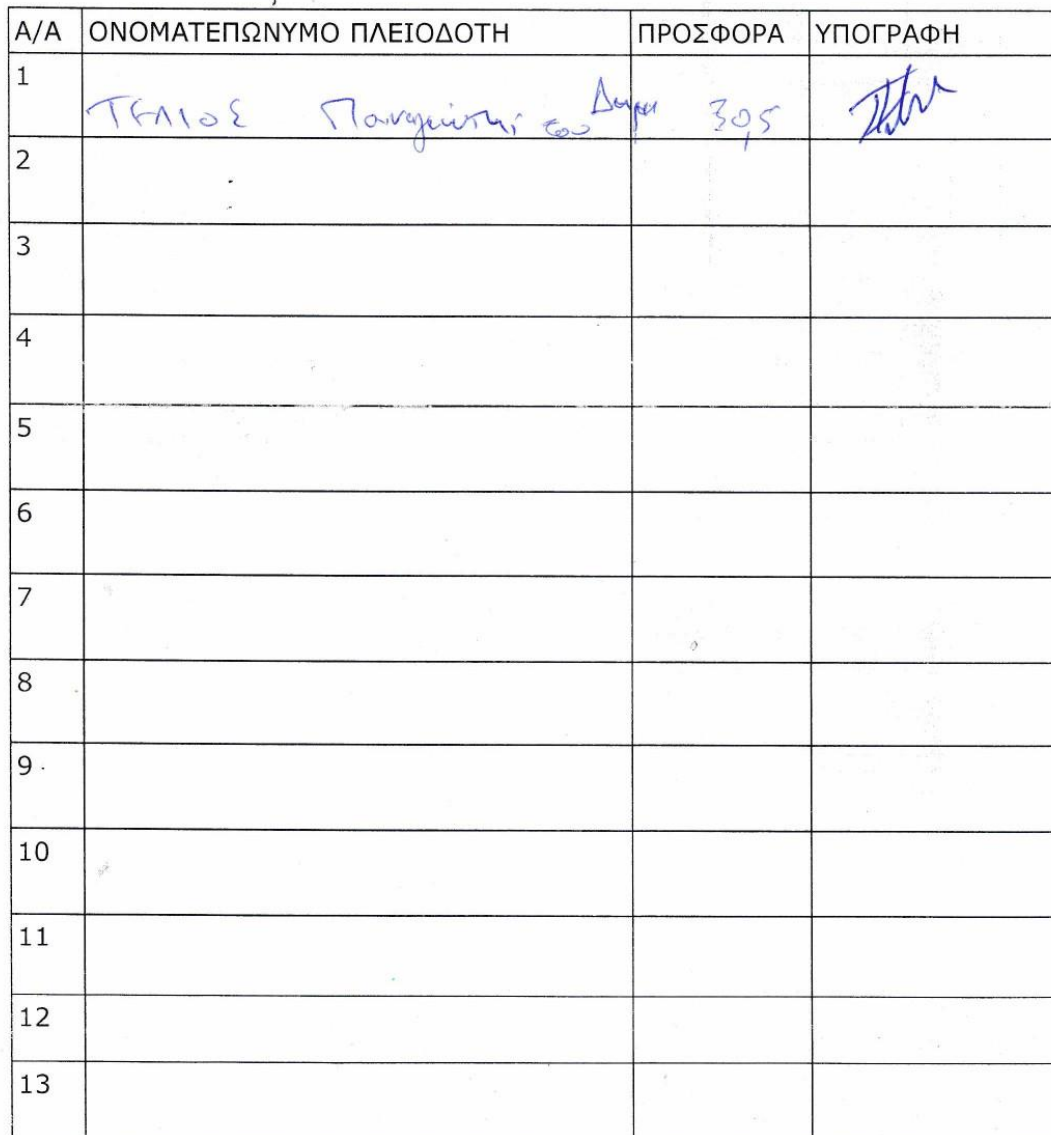 Α/Α ΟΝΟΜΑΤΕΠΩΝΥΜΟ ΠΛΕΙΟΔΟΤΗ ΠΡΟΣΦΟΡΑ ΥΠΟΓΡΑΦΗ
1 ΤΕΛΙΟΣ Παναγιώτης του 30,5
2
3
4
5
6
7
8
9
10
11
12
13